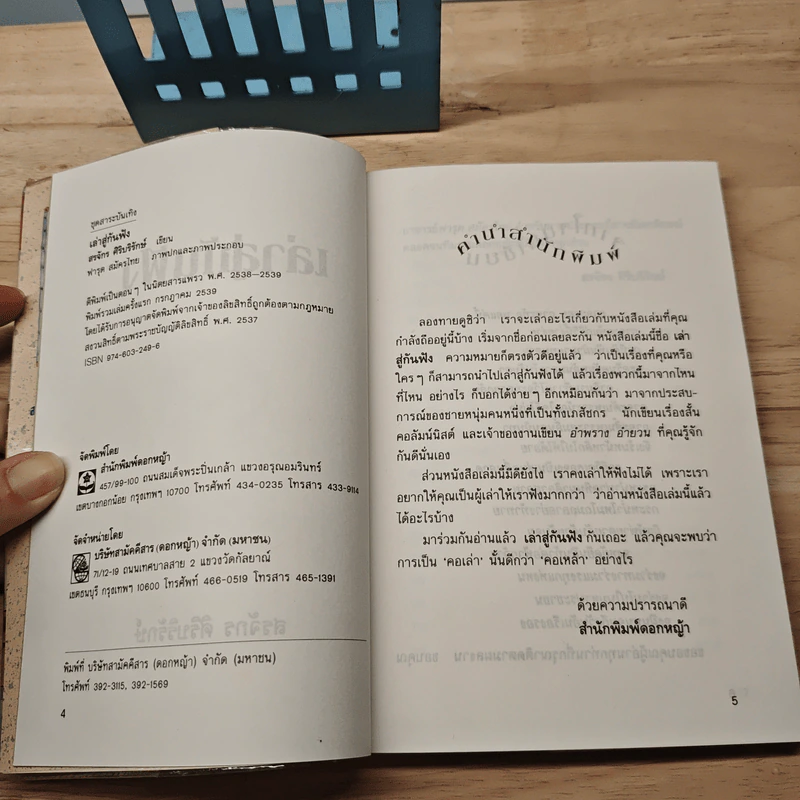 ชุดสาระบันเทิง
เล่าสู่กันฟัง
สรจักร ศิริบริรักษ์ เขียน
ฟารุต สมัครไทย ภาพปกและภาพประกอบ
ตีพิมพ์เป็นตอนๆ ในนิตยสารแพรว พ.ศ. 2538–2539
พิมพ์รวมเล่มครั้งแรก กรกฎาคม 2539
โดยได้รับการอนุญาตจัดพิมพ์จากเจ้าของลิขสิทธิ์ถูกต้องตามกฎหมาย
สงวนสิทธิ์ตามพระราชบัญญัติลิขสิทธิ์ พ.ศ. 2537
ISBN 974-603-249-6
จัดพิมพ์โดย
สำนักพิมพ์ดอกหญ้า
457/99-100 ถนนสมเด็จพระปิ่นเกล้า แขวงอรุณอมรินทร์
เขตบางกอกน้อย กรุงเทพฯ 10700 โทรศัพท์ 434-0235 โทรสาร 433-9114
จัดจำหน่ายโดย
บริษัทสามัคคีสาร (ดอกหญ้า) จำกัด (มหาชน)
71/12-19 ถนนเทศบาลสาย 2 แขวงวัดกัลยาณ์
เขตธนบุรี กรุงเทพฯ 10600 โทรศัพท์ 466-0519 โทรสาร 465-1391
พิมพ์ที่ บริษัทสามัคคีสาร (ดอกหญ้า) จำกัด (มหาชน)
โทรศัพท์ 392-3115, 392-1569
4
คำนำสำนักพิมพ์
ลองทายดูซิว่า เราจะเล่าอะไรเกี่ยวกับหนังสือเล่มที่คุณ
กำลังถืออยู่นี้บ้าง เริ่มจากชื่อก่อนเลยละกัน หนังสือเล่มนี้ชื่อ เล่า
สู่กันฟัง ความหมายก็ตรงตัวดีอยู่แล้ว ว่าเป็นเรื่องที่คุณหรือ
ใครๆ ก็สามารถนำไปเล่าสู่กันฟังได้ แล้วเรื่องพวกนี้มาจากไหน
ที่ไหน อย่างไร ก็บอกได้ง่ายๆ อีกเหมือนกันว่า มาจากประสบ-
การณ์ของชายหนุ่มคนหนึ่งที่เป็นทั้งเภสัชกร นักเขียนเรื่องสั้น
คอลัมน์นิสต์ และเจ้าของงานเขียน อำพราง อำยวน ที่คุณรู้จัก
กันดีนั่นเอง
ส่วนหนังสือเล่มนี้มีดียังไง เราคงเล่าให้ฟังไม่ได้ เพราะเรา
อยากให้คุณเป็นผู้เล่าให้เราฟังมากกว่า ว่าอ่านหนังสือเล่มนี้แล้ว
ได้อะไรบ้าง
มาร่วมกันอ่านแล้ว เล่าสู่กันฟัง กันเถอะ แล้วคุณจะพบว่า
การเป็น 'คอเล่า' นั้นดีกว่า 'คอเหล้า' อย่างไร
ด้วยความปรารถนาดี
สำนักพิมพ์ดอกหญ้า
5